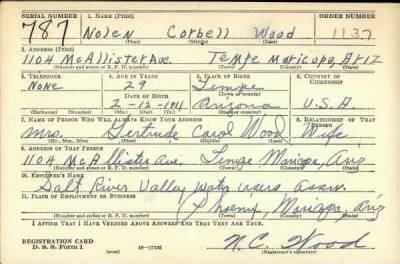 SERIAL NUMBER 1. NAME (Print) ORDER NUMBER
787 Nolen Corbell Wood 1137
(First) (Middle) (Last)
2. ADDRESS (Print)
1104 McAllister Ave. Tempe Maricopa, Ariz
(Number and street or R. F. D. number) (Town) (County) (State)
3. TELEPHONE 4. AGE IN YEARS 5. PLACE OF BIRTH 6. COUNTRY OF CITIZENSHIP
None 29 Tempe
DATE OF BIRTH (Town or county)
2-12-1911 Arizona U.S.A.
(Exchange) (Number) (Mo.) (Day) (Yr.) (State or country)
7. NAME OF PERSON WHO WILL ALWAYS KNOW YOUR ADDRESS 8. RELATIONSHIP OF THAT PERSON
Mrs. Gertrude Carol Wood Wife
(Mr., Mrs., Miss) (First) (Middle) (Last)
9. ADDRESS OF THAT PERSON
1104 McAllister Ave. Tempe Maricopa, Ariz
(Number and street or R. F. D. number) (Town) (County) (State)
10. EMPLOYER'S NAME
Salt River Valley water users assn.
11. PLACE OF EMPLOYMENT OR BUSINESS
Phoenix, Maricopa, Ariz
(Number and street or R. F. D. number) (Town) (County) (State)
I AFFIRM THAT I HAVE VERIFIED ABOVE ANSWERS AND THAT THEY ARE TRUE.
REGISTRATION CARD
D. S. S. Form 1 (over) 16-17105 N.C. Wood
(Registrant's signature)